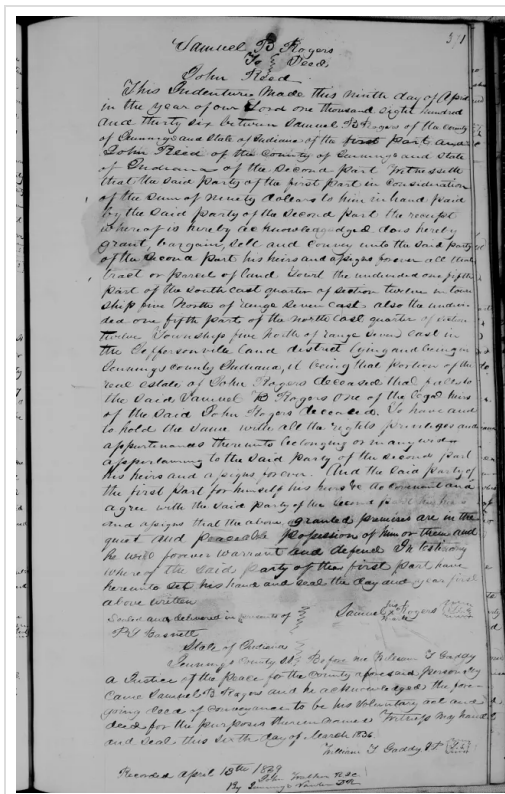 Samuel B Rogers
To } Deed
John Reed
This Indenture Made this ninth day of April
in the year of our Lord one thousand Eighteen hundred
and thirty six between Samuel B Rogers of the County
of Jennings and State of Indiana of the first part and
John Reed of the County of Jennings and State
of Indiana of the Second part Witnesseth
that the said party of the first part in consideration
of the sum of ninety dollars to him in hand paid
by the said party of the second part the receipt
whereof is hereby acknowledged does hereby
grant, bargain, sell and convey unto the said party
of the second part his heirs and assigns forever all that
tract or parcel of land Towit the undivided one fifth
part of the south east quarter of section twelve in town
ship five North of range seven east. also the undivi
ded one fifth part of the north east quarter of section
twelve Township five north of range seven east in
the Jeffersonville land district lying and being in
Jennings County Indiana, it being that portion of the
real estate of John Rogers deceased that falls to
the said Samuel B Rogers one of the legal heirs
of the said John Rogers deceased. To have and
to hold the same with all the rights privileges and
appurtenances thereunto belonging or in any wise
appertaining to the said party of the second part
his heirs and assigns forever. And the said party of
the first part for himself his heirs &c do covenant and
agree with the said party of the second part his heirs
and assigns that the above granted premises are in the
quiet and peaceable possession of him or them and
he will forever warrant and defend In testimony
whereof the said party of the first part have
hereunto set his hand and seal the day and year first
above written
Sealed and delivered in presents of
Samuel his x mark Rogers
State of Indiana
Jennings County SS Before me William T Gaddy
a Justice of the peace for the County aforesaid personally
Came Samuel B Rogers and he acknowledged the fore
going deed of conveyance to be his voluntary act and
deed for the purposes therein named Witness my hand
and seal this sixth day of March 1836
William T Gaddy JP
Recorded April 15th 1839
John Walker
By